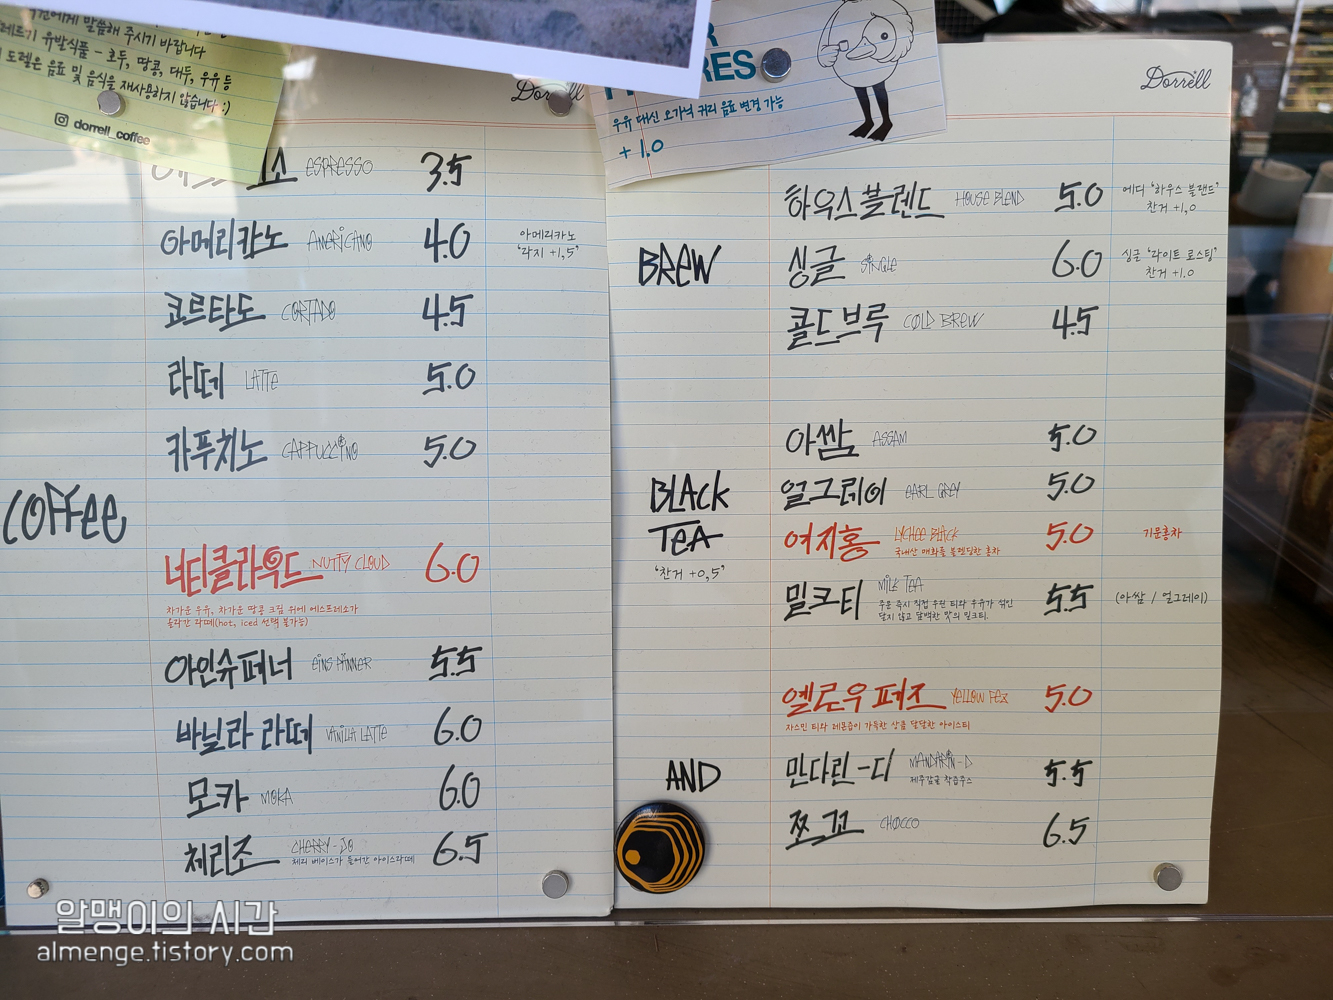 말씀해 주시기 바랍니다
유발식품 - 호두, 땅콩, 대두, 우유 등
도렐은 음료 및 음식을 재사용하지 않습니다 :)
dorrell_coffee
Dorrell
ESPRESSO 3.5
아메리카노 AMERICANO 4.0 아메리카노
'라지 +1,5"
코르타도 CORTADO 4.5
라떼 LATTE 5.0
카푸치노 CAPPUCCINO 5.0
COFFEE
너티클라우드 NUTTY CLOUD 6.0
차가운 우유, 차가운 땅콩 크림 위에 에스프레소가
올라간 라떼(hot, iced 선택 불가능)
아인슈페너 EINSPÄNNER 5.5
바닐라 라떼 VANILLA LATTE 6.0
모카 MOKA 6.0
체리조 CHERRY-JO 6.5
체리 베이스가 들어간 아이스라떼
RES
우유 대신 오가닉 귀리 음료 변경 가능
+ 1.0
Dorrell
하우스블렌드 HOUSE BLEND 5.0 에디 '하우스 블랜드'
찬거 +1,0
BREW
싱글 SINGLE 6.0 싱글 '라이트 로스팅'
찬거 +1.0
콜드브루 COLD BREW 4.5
BLACK
TEA
'찬거 +0,5"
아쌈 ASSAM 5.0
얼그레이 EARL GREY 5.0
여지홍 LYCHEE BLACK 5.0 기문홍차
국내산 매화를 블렌딩한 홍차
밀크티 MILK TEA 5.5 (아쌈 / 얼그레이)
주문 즉시 직접 우린 티와 우유가 섞인
달지 않고 담백한 맛의 밀크티.
AND
옐로우 페즈 YELLOW FEZ 5.0
자스민 티와 레몬즙이 가득한 상큼 달달한 아이스티
만다린-디 MANDARIN-D 5.5
제주감귤 착즙주스
쪼꼬 CHOCCO 6.5
알맹이의 시간
almenge.tistory.com